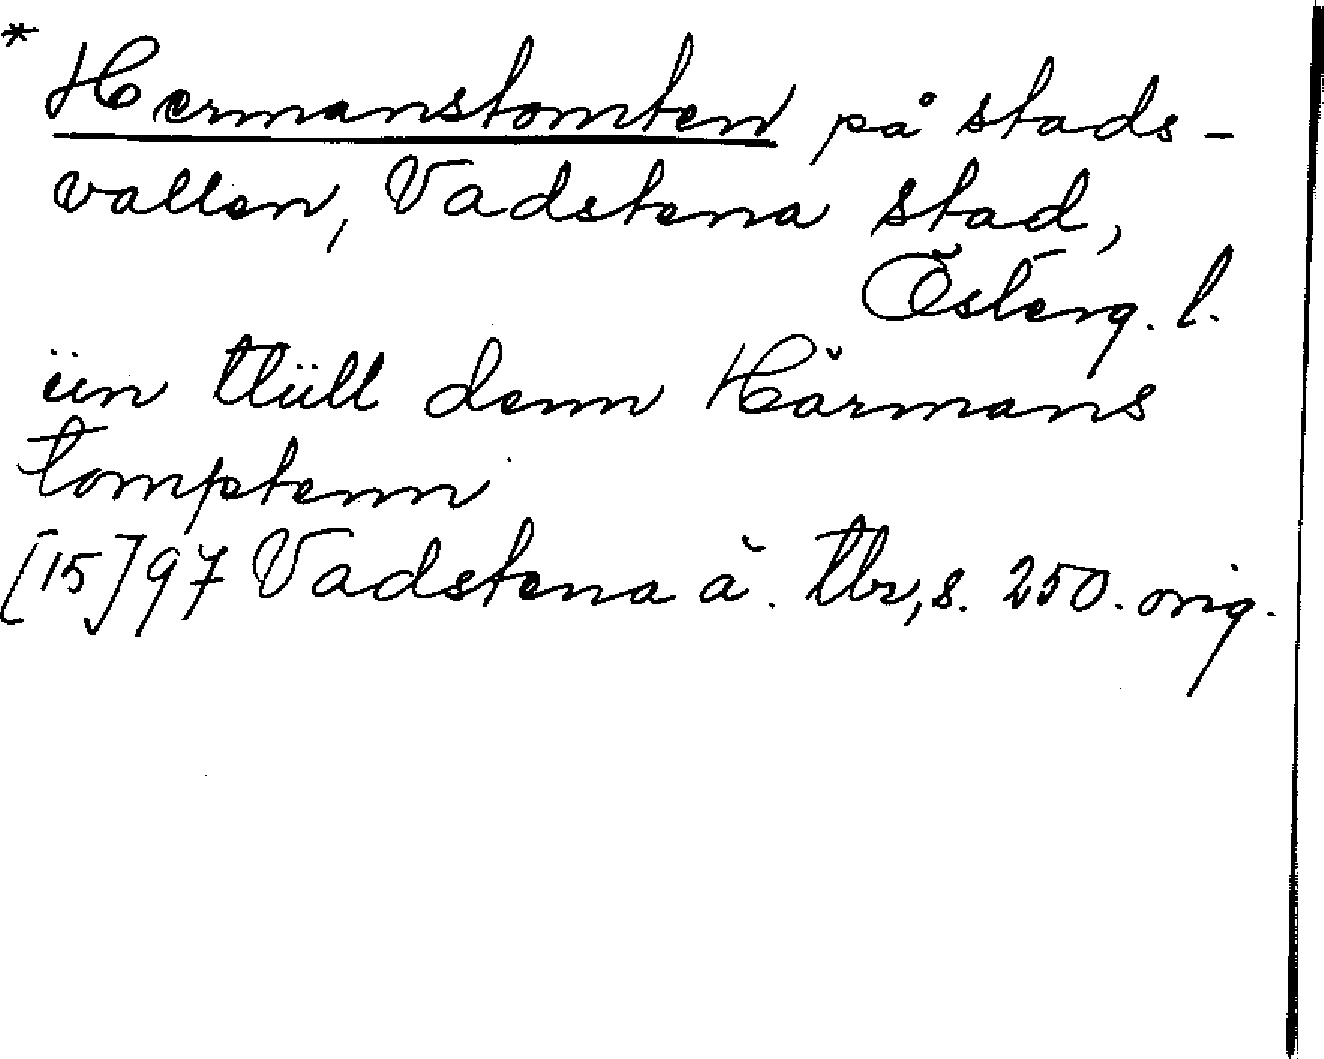 * Hermanstomten på stads-
vallen, Vadstena stad,
Österg. l.
iin ttiill denn Härmans
tomptenn
[15]97 Vadstena ä. tbr, s. 250. orig.